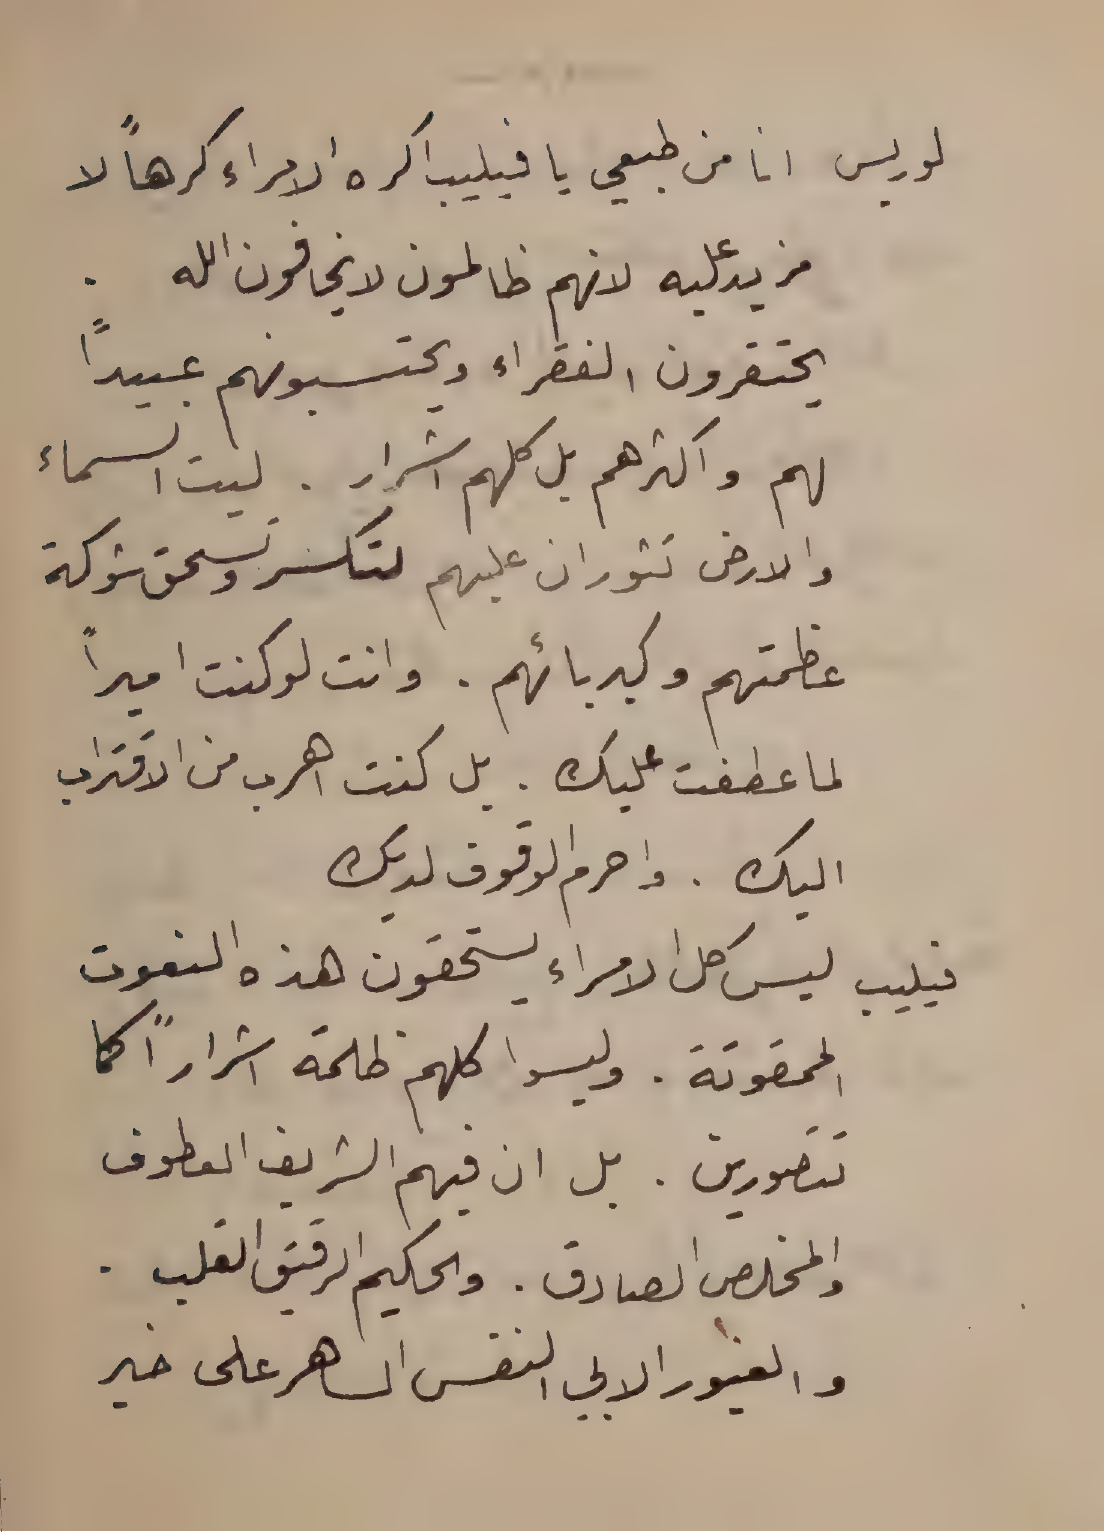 لوريس انا من طبعي يا فيليب اكره الامراء كرهاً لا
مزيد عليه لانهم ظالمون لا يخافون الله .
يحتقرون الفقراء ويحتسبونهم عبيداً
لهم واكثرهم بل كلهم اشرار . ليت السماء
والارض تثوران عليهم لتكسر وتسحق شوكة
عظمتهم وكبريائهم . وانت لو كنت اميراً
لما عطفت عليك . بل كنت اهرب من الاقتراب
اليك . واحرم الوقوف لديك
فيليب ليس كل الامراء يستحقون هذه النعوت
الممقوتة . وليسوا كلهم ظلمة اشراراً كما
تتصورين . بل ان فيهم الشريف العطوف
والمخلص الصادق . والحكيم الرقيق القلب .
والغيور الابي النفس الساهر على خير